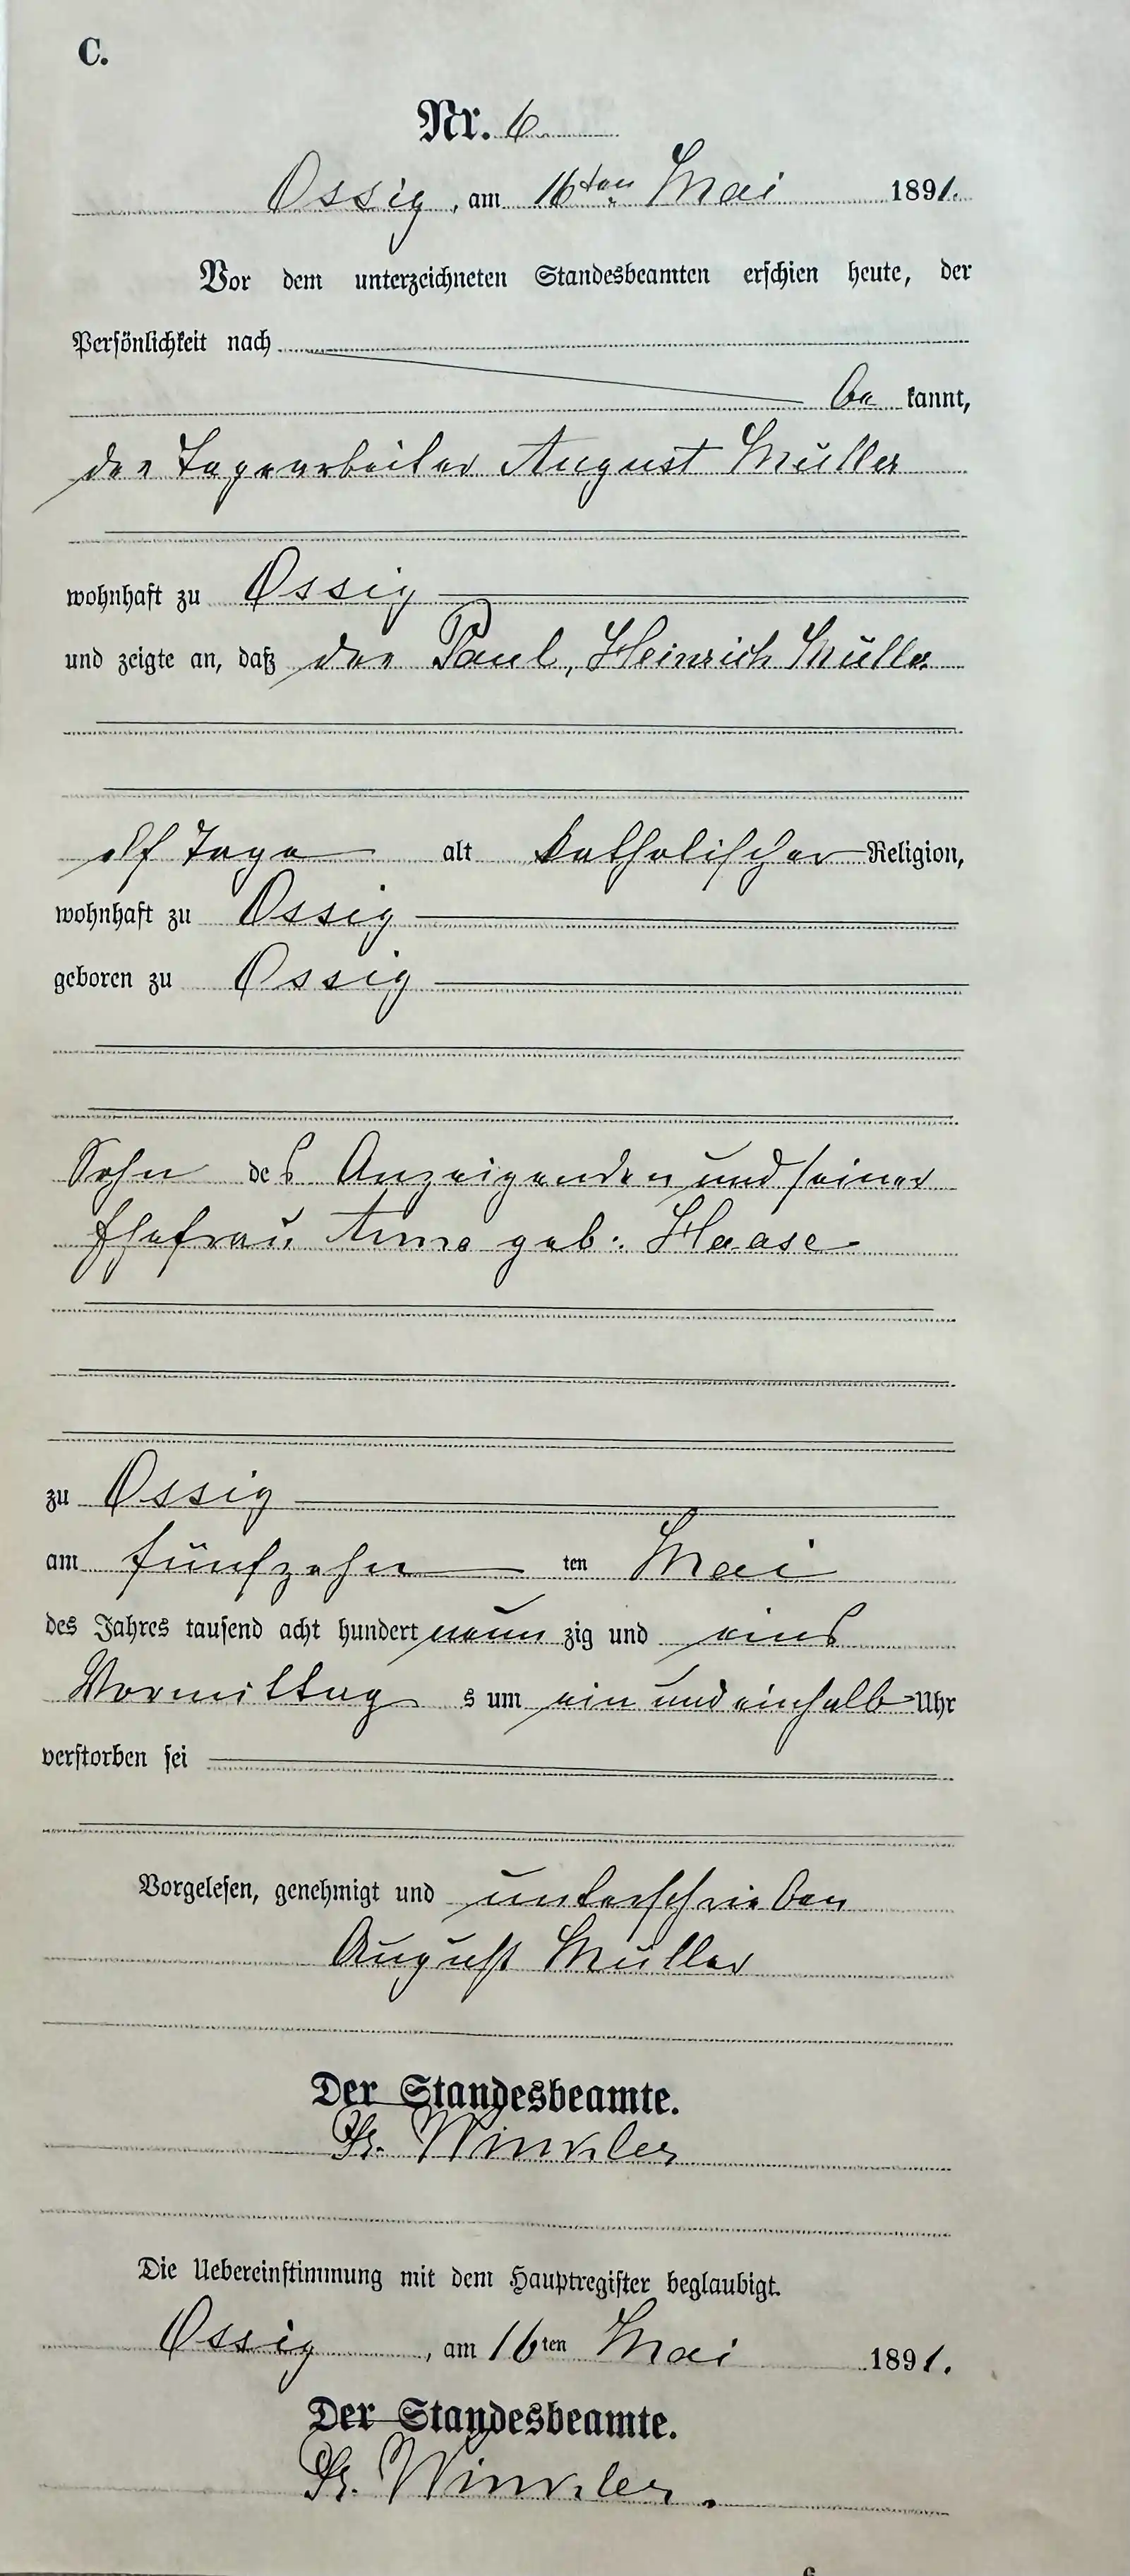 C.
Nr. 6.
Ossig, am 16ten Mai 1891.
Vor dem unterzeichneten Standesbeamten erschien heute, der
Persönlichkeit nach
be kannt,
der Tagearbeiter August Müller
wohnhaft zu Ossig
und zeigte an, daß der Paul, Heinrich Müller
elf Tage alt katholischer Religion,
wohnhaft zu Ossig
geboren zu Ossig
Sohn des Anzeigenden und seiner
Ehefrau Anna geb. Haase
zu Ossig
am fünfzehn ten Mai
des Jahres tausend acht hundert neun zig und eins
Vormittag s um ein und einhalb Uhr
verstorben sei
Vorgelesen, genehmigt und unterschrieben
August Müller
Der Standesbeamte.
Fr. Winkler
Die Uebereinstimmung mit dem Hauptregister beglaubigt.
Ossig, am 16ten Mai 1891.
Der Standesbeamte.
Fr. Winkler.
6